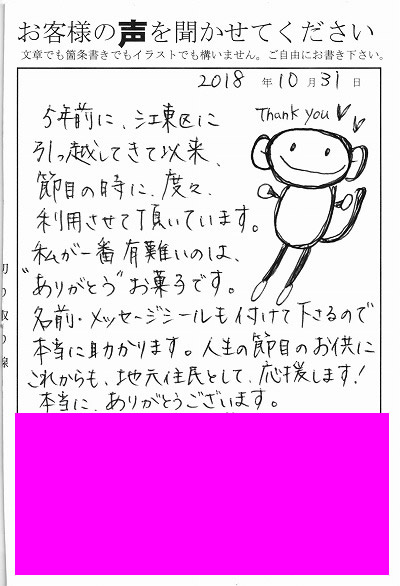 お客様の声を聞かせてください
文章でも箇条書きでもイラストでも構いません。ご自由にお書き下さい。
2018 年 10 月 31 日
Thank you
5年前に、江東区に
引っ越してきて以来、
節目の時に、度々、
利用させて頂いています。
私が一番有難いのは、
"ありがとう"お菓子です。
名前・メッセージシールも付けて下さるので
本当に助かります。人生の節目のお供に
これからも、地元住民として、応援します!
本当に、ありがとうございます。